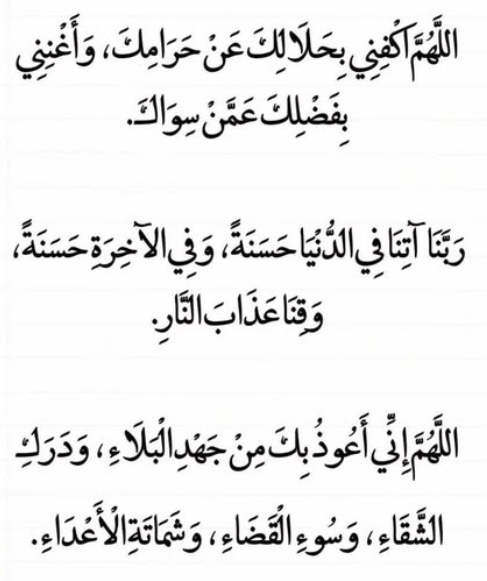 اللَّهُمَّ اكْفِنِي بِحَلَالِكَ عَنْ حَرَامِكَ، وَأَغْنِنِي
بِفَضْلِكَ عَمَّنْ سِوَاكَ.
رَبَّنَا آتِنَا فِي الدُّنْيَا حَسَنَةً، وَفِي الآخِرَةِ حَسَنَةً،
وَقِنَا عَذَابَ النَّارِ.
اللَّهُمَّ إِنِّي أَعُوذُ بِكَ مِنْ جَهْدِ الْبَلَاءِ، وَدَرَكِ
الشَّقَاءِ، وَسُوءِ الْقَضَاءِ، وَشَمَاتَةِ الْأَعْدَاءِ.